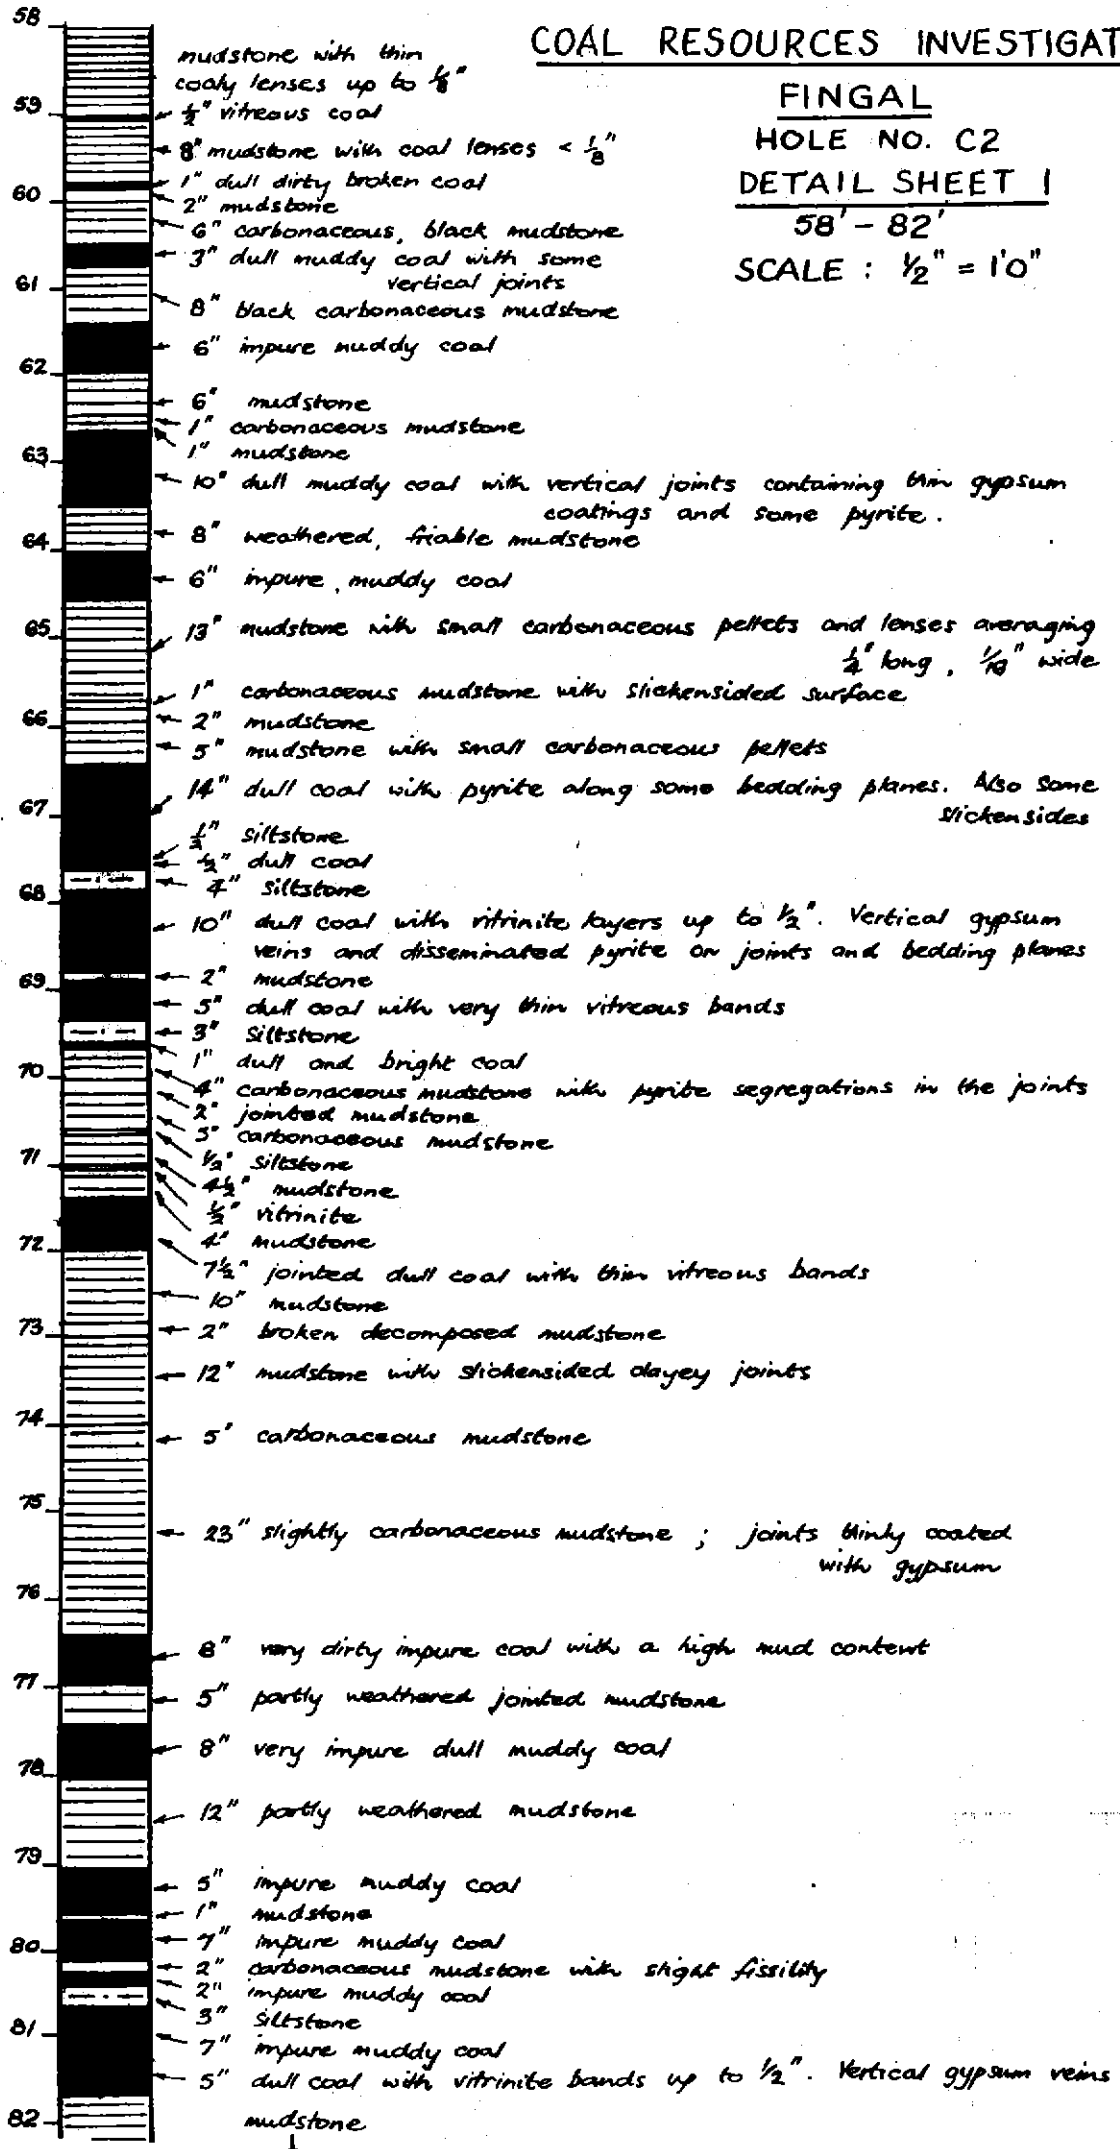 COAL RESOURCES INVESTIGAT
FINGAL
HOLE NO. C2
DETAIL SHEET 1
58' - 82'
SCALE : 1/2" = 1'0"
58
mudstone with thin
coaly lenses up to 1/8"
59
1/2" vitreous coal
8" mudstone with coal lenses < 1/8"
1" dull dirty broken coal
60
2" mudstone
6" carbonaceous, black mudstone
3" dull muddy coal with some
vertical joints
61
8" black carbonaceous mudstone
6" impure muddy coal
62
6" mudstone
1" carbonaceous mudstone
1" mudstone
63
10" dull muddy coal with vertical joints containing thin gypsum
coatings and some pyrite.
8" weathered, friable mudstone
64
6" impure, muddy coal
65
13" mudstone with small carbonaceous pellets and lenses averaging
long, wide
1" carbonaceous mudstone with slickensided surface
66
2" mudstone
5" mudstone with small carbonaceous pellets
14" dull coal with pyrite along some bedding planes. Also some
slickensides
67
siltstone
1/2" dull coal
4" siltstone
68
10" dull coal with vitrinite layers up to 1/2". Vertical gypsum
veins and disseminated pyrite on joints and bedding planes
69
2" mudstone
5" dull coal with very thin vitreous bands
3" Siltstone
1" dull and bright coal
70
4" carbonaceous mudstone with pyrite segregations in the joints
2" jointed mudstone
3" carbonaceous mudstone
71
1/2" siltstone
4 1/2" mudstone
1/2" vitrinite
4" mudstone
72
7 1/2" jointed dull coal with thin vitreous bands
10" mudstone
73
2" broken decomposed mudstone
12" mudstone with slickensided clayey joints
74
5' carbonaceous mudstone
75
23" slightly carbonaceous mudstone ; joints thinly coated
with gypsum
76
8" very dirty impure coal with a high mud content
77
5" partly weathered jointed mudstone
8" very impure dull muddy coal
78
12" partly weathered mudstone
79
5" impure muddy coal
1" mudstone
7" impure muddy coal
80
2" carbonaceous mudstone with slight fissility
2" impure muddy coal
3" siltstone
81
7" impure muddy coal
5" dull coal with vitrinite bands up to 1/2". Vertical gypsum veins
82
mudstone